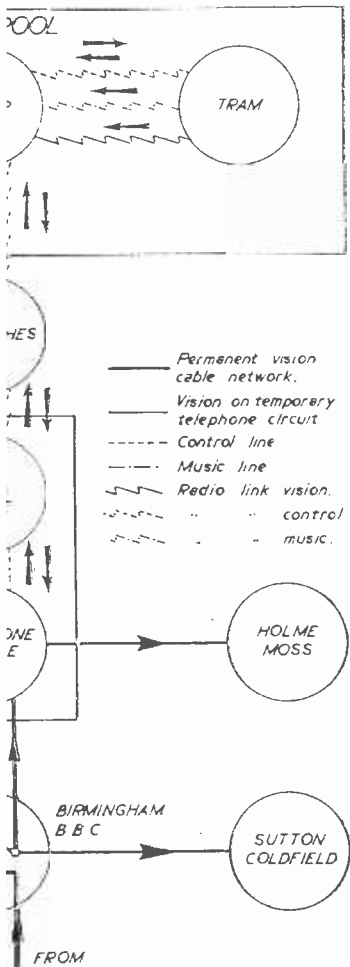 POOL
TRAM
HES
Permanent vision
cable network.
Vision on temporary
telephone circuit
Control line
Music line
Radio link vision.
" " control
" " music.
ONE
E
HOLME
MOSS
BIRMINGHAM
B B C
SUTTON
COLDFIELD
FROM